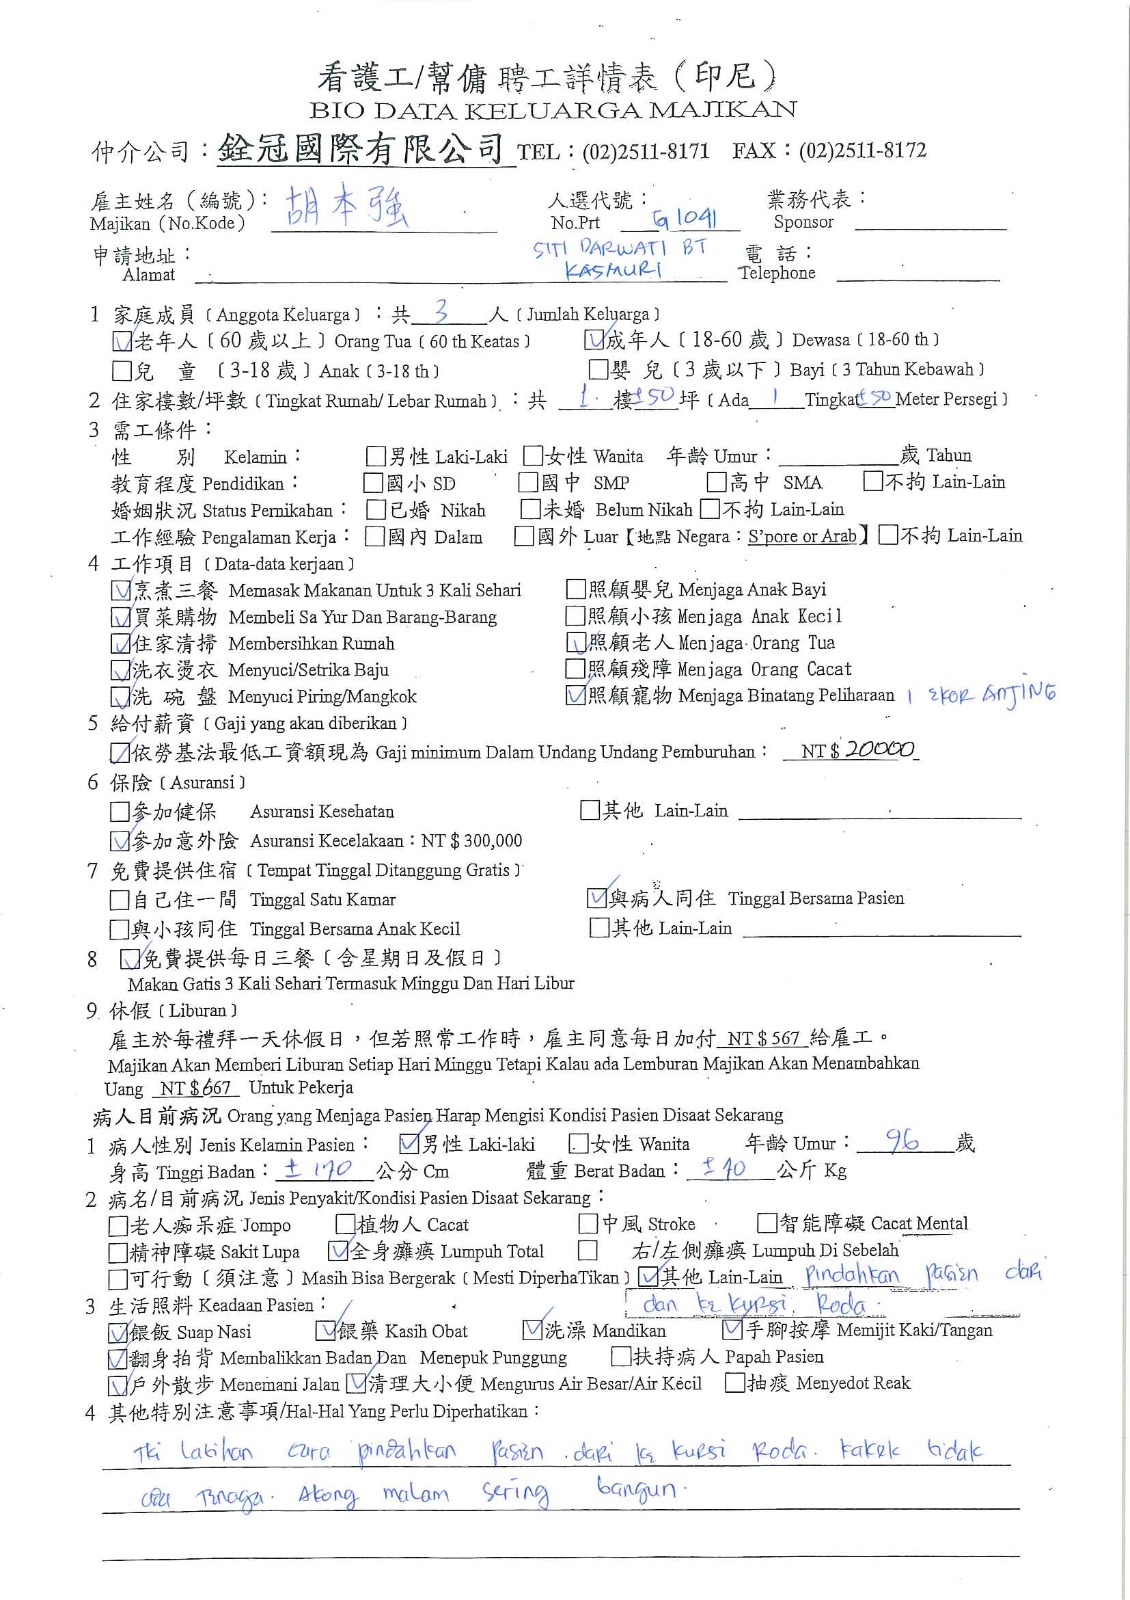 看護工/幫傭 聘工詳情表（印尼）
BIO DATA KELUARGA MAJIKAN
仲介公司：銓冠國際有限公司 TEL：(02)2511-8171 FAX：(02)2511-8172
雇主姓名（編號）： 胡本強 人選代號： 業務代表：
Majikan (No.Kode) No.Prt G1041 Sponsor
申請地址： SITI DARWATI BT 電 話：
Alamat KASMURI Telephone
1 家庭成員（Anggota Keluarga）：共 3 人（Jumlah Keluarga）
☑老年人（60 歲以上）Orang Tua（60 th Keatas） ☑成年人（18-60 歲）Dewasa（18-60 th）
☐兒 童（3-18 歲）Anak（3-18 th） ☐嬰 兒（3 歲以下）Bayi（3 Tahun Kebawah）
2 住家樓數/坪數（Tingkat Rumah/ Lebar Rumah）：共 1. 樓 ±50 坪（Ada 1 Tingkat ±50 Meter Persegi）
3 需工條件：
性 別 Kelamin： ☐男性 Laki-Laki ☐女性 Wanita 年齡 Umur： 歲 Tahun
教育程度 Pendidikan： ☐國小 SD ☐國中 SMP ☐高中 SMA ☐不拘 Lain-Lain
婚姻狀況 Status Pernikahan： ☐已婚 Nikah ☐未婚 Belum Nikah ☐不拘 Lain-Lain
工作經驗 Pengalaman Kerja： ☐國內 Dalam ☐國外 Luar【地點 Negara：S'pore or Arab】☐不拘 Lain-Lain
4 工作項目（Data-data kerjaan）
☑烹煮三餐 Memasak Makanan Untuk 3 Kali Sehari ☐照顧嬰兒 Menjaga Anak Bayi
☑買菜購物 Membeli Sa Yur Dan Barang-Barang ☐照顧小孩 Menjaga Anak Kecil
☑住家清掃 Membersihkan Rumah ☑照顧老人 Menjaga Orang Tua
☑洗衣燙衣 Menyuci/Setrika Baju ☐照顧殘障 Menjaga Orang Cacat
☑洗 碗 盤 Menyuci Piring/Mangkok ☑照顧寵物 Menjaga Binatang Peliharaan 1 EKOR ANJING
5 給付薪資（Gaji yang akan diberikan）
☑依勞基法最低工資額現為 Gaji minimum Dalam Undang Undang Pemburuhan： NT$ 20000
6 保險（Asuransi）
☐參加健保 Asuransi Kesehatan ☐其他 Lain-Lain
☑參加意外險 Asuransi Kecelakaan：NT$300,000
7 免費提供住宿（Tempat Tinggal Ditanggung Gratis）
☐自己住一間 Tinggal Satu Kamar ☑與病人同住 Tinggal Bersama Pasien
☐與小孩同住 Tinggal Bersama Anak Kecil ☐其他 Lain-Lain
8 ☑免費提供每日三餐（含星期日及假日）
Makan Gatis 3 Kali Sehari Termasuk Minggu Dan Hari Libur
9 休假（Liburan）
雇主於每禮拜一天休假日，但若照常工作時，雇主同意每日加付 NT$567 給雇工。
Majikan Akan Memberi Liburan Setiap Hari Minggu Tetapi Kalau ada Lemburan Majikan Akan Menambahkan
Uang NT$667 Untuk Pekerja
病人目前病況 Orang yang Menjaga Pasien Harap Mengisi Kondisi Pasien Disaat Sekarang
1 病人性別 Jenis Kelamin Pasien： ☑男性 Laki-laki ☐女性 Wanita 年齡 Umur： 96 歲
身高 Tinggi Badan： ± 170 公分 Cm 體重 Berat Badan： ± 70 公斤 Kg
2 病名/目前病況 Jenis Penyakit/Kondisi Pasien Disaat Sekarang：
☐老人痴呆症 Jompo ☐植物人 Cacat ☐中風 Stroke ☐智能障礙 Cacat Mental
☐精神障礙 Sakit Lupa ☑全身癱瘓 Lumpuh Total ☐ 右/左側癱瘓 Lumpuh Di Sebelah
☐可行動（須注意）Masih Bisa Bergerak（Mesti DiperhaTikan）☑其他 Lain-Lain Pindahkan pasien dari
dan ke kursi Roda.
3 生活照料 Keadaan Pasien：
☑餵飯 Suap Nasi ☑餵藥 Kasih Obat ☑洗澡 Mandikan ☑手腳按摩 Memijit Kaki/Tangan
☑翻身拍背 Membalikkan Badan Dan Menepuk Punggung ☐扶持病人 Papah Pasien
☑戶外散步 Menemani Jalan ☑清理大小便 Mengurus Air Besar/Air Kecil ☐抽痰 Menyedot Reak
4 其他特別注意事項/Hal-Hal Yang Perlu Diperhatikan：
TKI Latihan cara pindahkan pasien dari ke kursi Roda. Kakek tidak
ada Tenaga. Akong malam sering bangun.